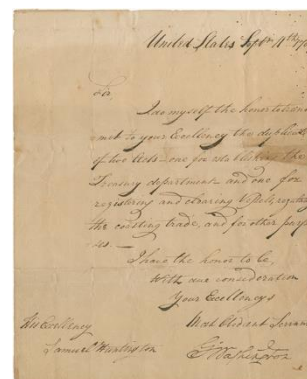 United States Sept.
Sir
I do myself the honor to trans
mit to your Excellency the duplicates
of two Acts — one for establishing the
Treasury department — and one for
registering and clearing Vessels, regulating
the coasting trade, and for other purpo
ses. —
I have the honor to be,
With due consideration
Your Excellency's
Most Obedient Servant
His Excellency
Samuel Huntington
G Washington